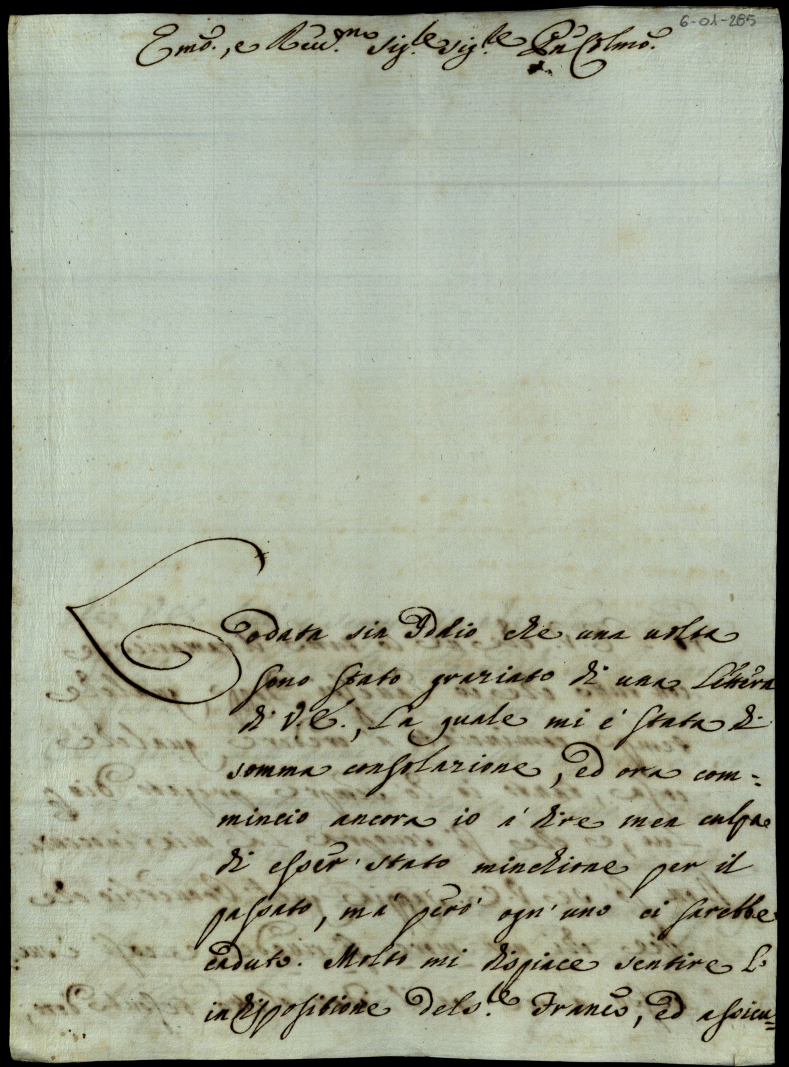 6-01-285
Emo., e Reud.mo Sig.re Sig.re Pn Colmo.
Lodata sia Iddio che una uolta
sono stato graziato di una Lettera
di V.E., La quale mi è stata di
somma consolazione, ed ora com=
mincio ancora io à dire mea culpa
di esser' stato minchione per il
passato, mà però ogn'uno ci sarebbe
caduto. Molto mi dispiace sentire L'
indispositione del S.re Franco, ed assicu=